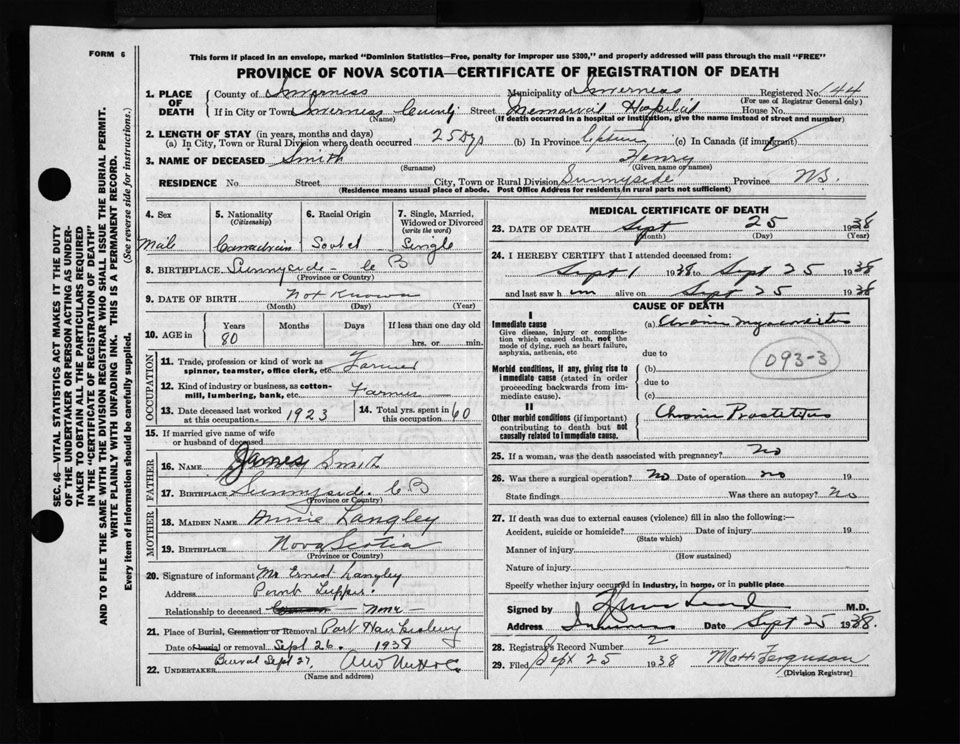 FORM 6
This form if placed in an envelope, marked "Dominion Statistics—Free, penalty for improper use $300," and properly addressed will pass through the mail "FREE"
PROVINCE OF NOVA SCOTIA—CERTIFICATE OF REGISTRATION OF DEATH
1. PLACE OF DEATH
County of Inverness Municipality of Inverness Registered No. 144
(For use of Registrar General only)
If in City or Town Inverness County Street Memorial Hospital House No.
(Name) (If death occurred in a hospital or institution, give the name instead of street and number)
2. LENGTH OF STAY (in years, months and days)
(a) In City, Town or Rural Division where death occurred 25 Dys (b) In Province (c) In Canada (if immigrant)
3. NAME OF DECEASED Smith Henry
(Surname) (Given name or names)
RESIDENCE No. Street City, Town or Rural Division Sunnyside Province N.S.
(Residence means usual place of abode. Post Office Address for residents in rural parts not sufficient)
4. Sex
Male
5. Nationality
(Citizenship)
Canadian
6. Racial Origin
7. Single, Married, Widowed or Divorced
(write the word)
Single
8. BIRTHPLACE Sunnyside - C B
(Province or Country)
9. DATE OF BIRTH Not Known
(Month) (Day) (Year)
10. AGE in
Years Months Days If less than one day old
80 hrs. or min.
OCCUPATION
11. Trade, profession or kind of work as spinner, teamster, office clerk, etc. Farmer
12. Kind of industry or business, as cotton-mill, lumbering, bank, etc. Farmer
13. Date deceased last worked at this occupation 1923
14. Total yrs. spent in this occupation 60
15. If married give name of wife or husband of deceased
FATHER
16. NAME James Smith
17. BIRTHPLACE Sunnyside. C B
(Province or Country)
MOTHER
18. MAIDEN NAME Annie Langley
19. BIRTHPLACE Nova Scotia
(Province or Country)
20. Signature of informant Mr Ernest Langley
Address Point Tupper
Relationship to deceased — None —
21. Place of Burial, Cremation or Removal Port Hawkesbury
Date of burial or removal Sept 26. 1938
Burial Sept 27,
22. UNDERTAKER
(Name and address)
MEDICAL CERTIFICATE OF DEATH
23. DATE OF DEATH Sept 25 1938
(Month) (Day) (Year)
24. I HEREBY CERTIFY that I attended deceased from:
Sept 1 1938 to Sept 25 1938
and last saw him alive on Sept 25 1938
CAUSE OF DEATH
I
Immediate cause
Give disease, injury or complication which caused death, not the mode of dying, such as heart failure, asphyxia, asthenia, etc
(a) Chronic myocarditis
due to
093-3
Morbid conditions, if any, giving rise to immediate cause (stated in order proceeding backwards from immediate cause).
(b)
due to
(c)
II
Other morbid conditions (if important) contributing to death but not causally related to immediate cause.
Chronic Prostatitis
25. If a woman, was the death associated with pregnancy? no
26. Was there a surgical operation? No Date of operation no 19
State findings Was there an autopsy? No
27. If death was due to external causes (violence) fill in also the following:—
Accident, suicide or homicide? Date of injury 19
(State which)
Manner of injury
(How sustained)
Nature of injury
Specify whether injury occurred in industry, in home, or in public place
Signed by M.D.
Address Inverness Date Sept 25 1938.
28. Registrar's Record Number 2
29. Filed Sept 25 1938 Ferguson
(Division Registrar)
SEC. 46—VITAL STATISTICS ACT MAKES IT THE DUTY
OF THE UNDERTAKER OR PERSON ACTING AS UNDER-
TAKER TO OBTAIN ALL THE PARTICULARS REQUIRED
IN THE "CERTIFICATE OF REGISTRATION OF DEATH"
AND TO FILE THE SAME WITH THE DIVISION REGISTRAR WHO SHALL ISSUE THE BURIAL PERMIT.
WRITE PLAINLY WITH UNFADING INK. THIS IS A PERMANENT RECORD.
Every item of information should be carefully supplied. (See reverse side for instructions.)